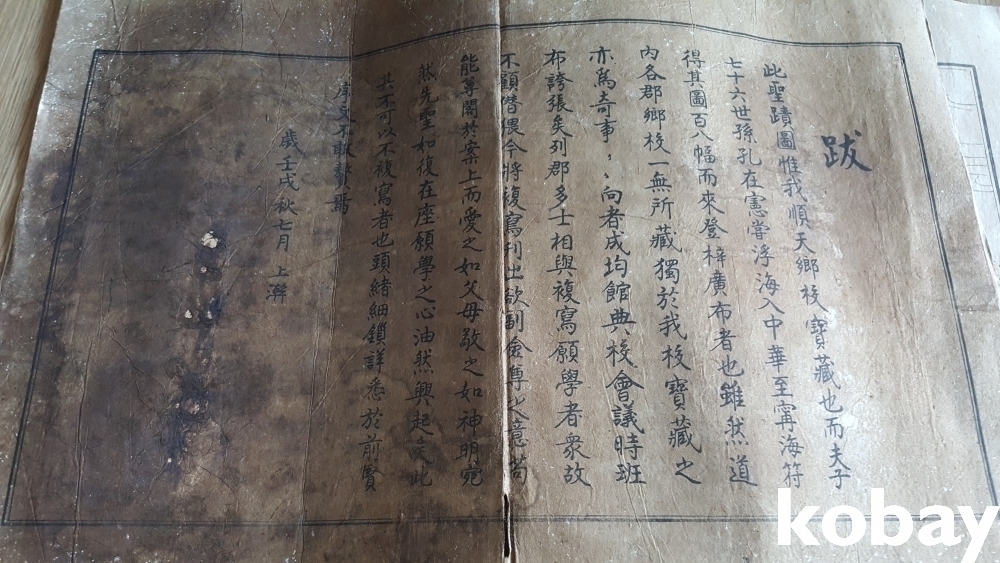 跋
此聖蹟圖惟我順天鄉校寶藏也而夫子
七十六世孫孔在憲嘗浮海入中華至寗海符
得其圖百八幅而來登梓廣布者也雖然道
內各郡鄉校一無所藏獨於我校寶藏之
亦爲奇事〻向者成均館典校會議時班
布誇張矣列郡多士相與複寫願學者衆故
不顧僭猥今將複寫刊出欲副僉尊之意苟
能尊閣於案上而愛之如父母敬之如神明宛
然先聖如復在座願學之心油然興起矣此
其不可以不複寫者也頭緖細鎖詳悉於前賢
序文不敢贅焉
歲壬戌秋七月 上澣
kobay